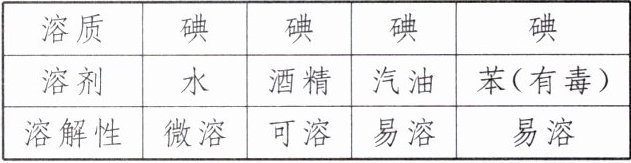 溶质 碘 碘 碘 碘
溶剂 水 酒精 汽油 苯(有毒)
溶解性 微溶 可溶 易溶 易溶